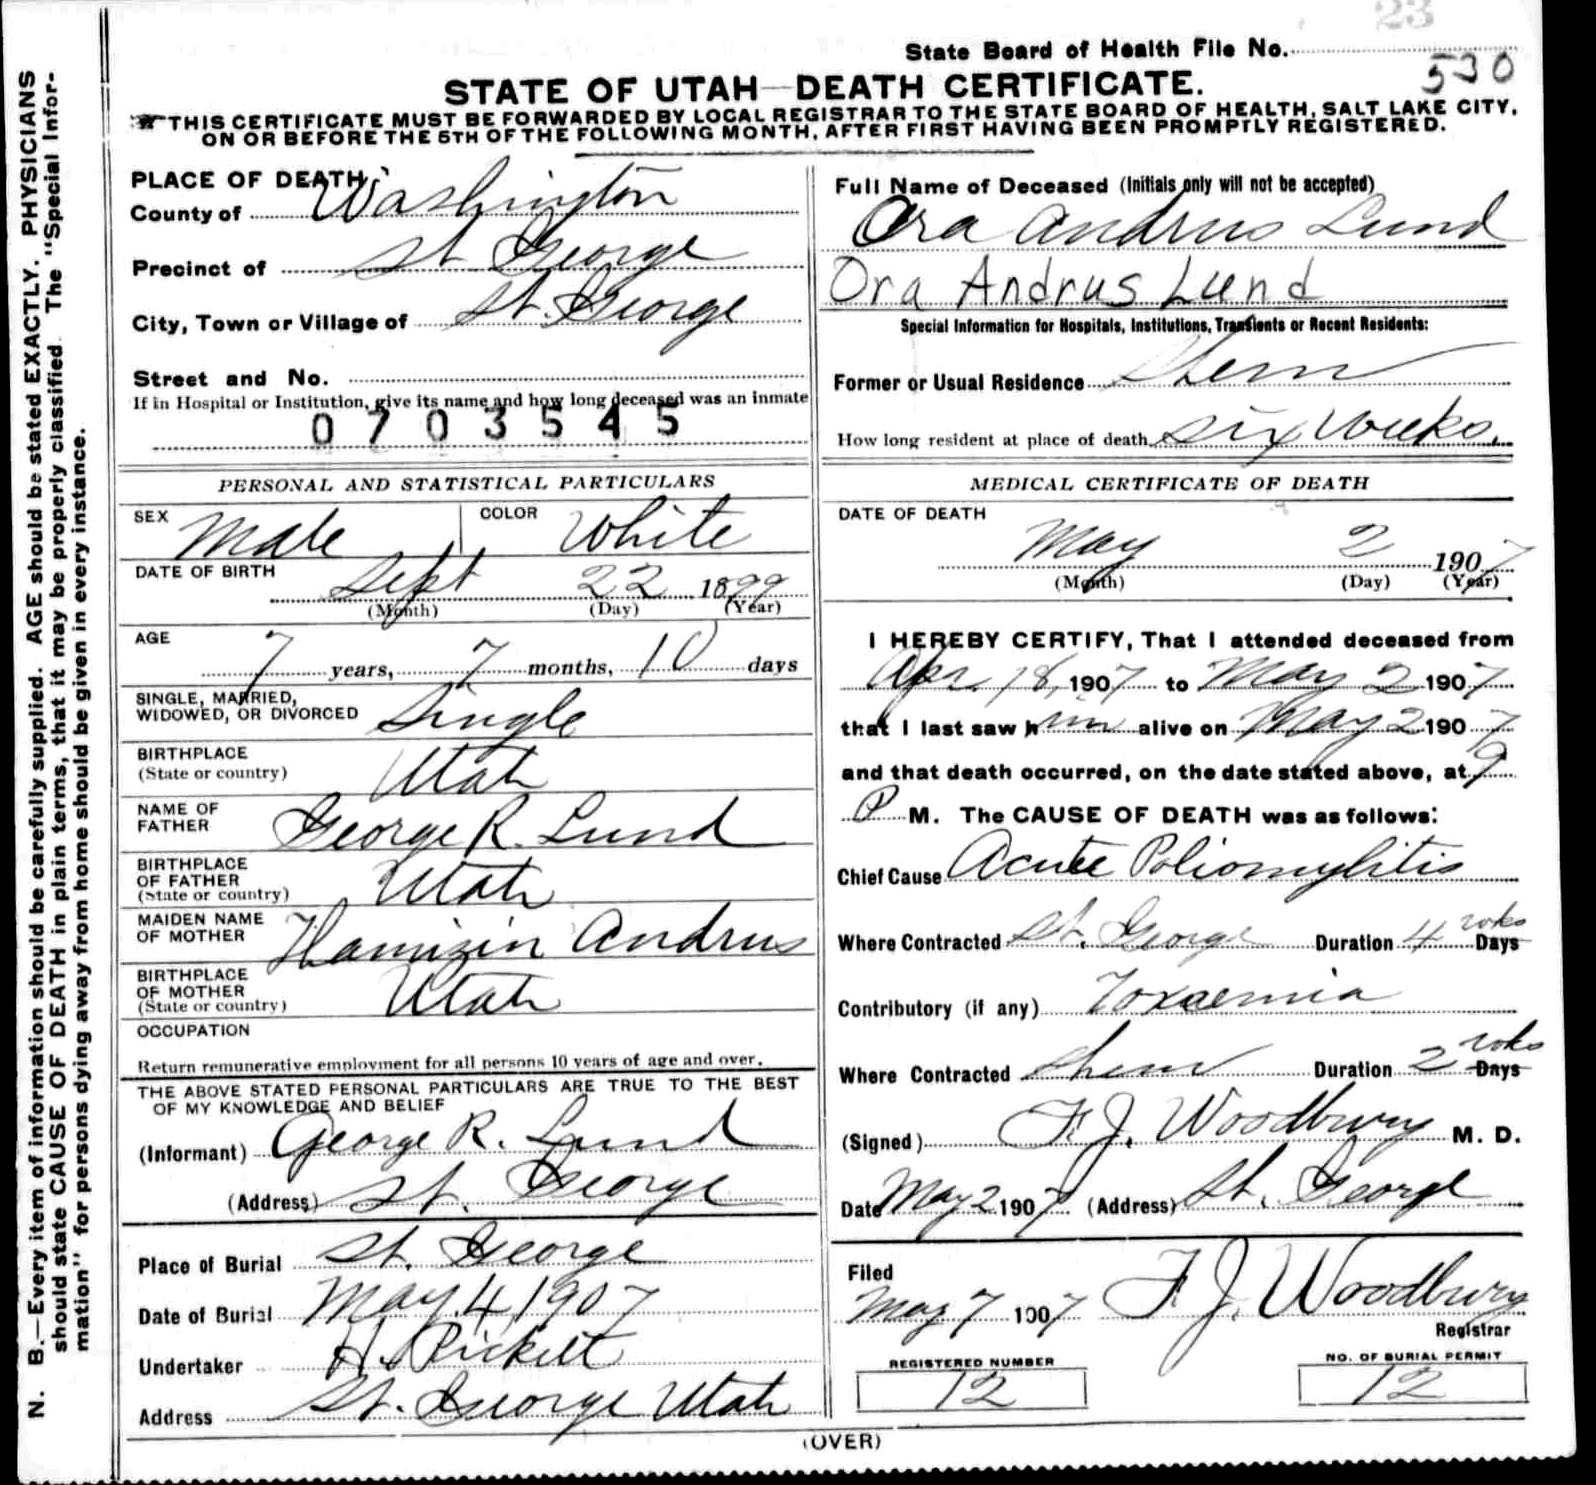 23
State Board of Health File No.
530
STATE OF UTAH—DEATH CERTIFICATE.
THIS CERTIFICATE MUST BE FORWARDED BY LOCAL REGISTRAR TO THE STATE BOARD OF HEALTH, SALT LAKE CITY,
ON OR BEFORE THE 5TH OF THE FOLLOWING MONTH, AFTER FIRST HAVING BEEN PROMPTLY REGISTERED.
N. B.—Every item of information should be carefully supplied. AGE should be stated EXACTLY. PHYSICIANS
should state CAUSE OF DEATH in plain terms, that it may be properly classified. The "Special Infor-
mation" for persons dying away from home should be given in every instance.
PLACE OF DEATH:
County of Washington
Precinct of St George
City, Town or Village of St. George
Street and No.
If in Hospital or Institution, give its name and how long deceased was an inmate
0703545
Full Name of Deceased (Initials only will not be accepted)
Ora Andrus Lund
Ora Andrus Lund
Special Information for Hospitals, Institutions, Transients or Recent Residents:
Former or Usual Residence
How long resident at place of death six weeks.
PERSONAL AND STATISTICAL PARTICULARS
SEX Male COLOR White
DATE OF BIRTH Sept 22 1899
(Month) (Day) (Year)
AGE 7 years, 7 months, 10 days
SINGLE, MARRIED,
WIDOWED, OR DIVORCED Single
BIRTHPLACE
(State or country) Utah
NAME OF
FATHER George R. Lund
BIRTHPLACE
OF FATHER
(State or country) Utah
MAIDEN NAME
OF MOTHER Andrus
BIRTHPLACE
OF MOTHER
(State or country) Utah
OCCUPATION
Return remunerative employment for all persons 10 years of age and over.
THE ABOVE STATED PERSONAL PARTICULARS ARE TRUE TO THE BEST
OF MY KNOWLEDGE AND BELIEF
(Informant) George R. Lund
(Address) St. George
Place of Burial St. George
Date of Burial May 4 1907
Undertaker H. Pickett
Address St. George Utah
MEDICAL CERTIFICATE OF DEATH
DATE OF DEATH
May 2 1907
(Month) (Day) (Year)
I HEREBY CERTIFY, That I attended deceased from
Apr. 18, 1907 to May 2 1907
that I last saw him alive on May 2 1907
and that death occurred, on the date stated above, at 9
P M. The CAUSE OF DEATH was as follows:
Chief Cause Acute Poliomylitis
Where Contracted St. George Duration 4 wks Days
Contributory (if any) Toxaemia
Where Contracted Duration 2 wks Days
(Signed) F. J. Woodbury M. D.
Date May 2 1907 (Address) St. George
Filed
May 7 1907 F. J. Woodbury
Registrar
REGISTERED NUMBER
12
NO. OF BURIAL PERMIT
12
(OVER)